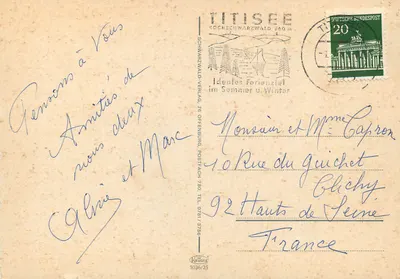 Pensons à Vous
Amitiés de
nous deux
et Marc
TITISEE
HOCHSCHWARZWALD
Idealer Ferienort
im Sommer u. Winter
DEUTSCHE BUNDESPOST
20
Monsieur et Mme Capron
10 Rue du Guichet
Clichy
92 Hauts de Seine
France
SCHWARZWALD-VERLAG, 76 OFFENBURG, POSTFACH